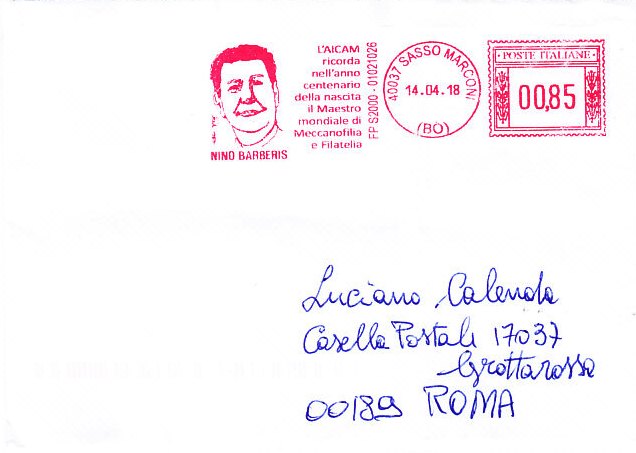 L'AICAM
ricorda
nell'anno
centenario
della nascita
il Maestro
mondiale di
Meccanofilia
e Filatelia
NINO BARBERIS
FP S2000 - 01021026
40037 SASSO MARCONI
14.04.18
(BO)
• POSTE ITALIANE •
00,85
Luciano Calenda
Casella Postale 17037
Grottarossa
00189 ROMA